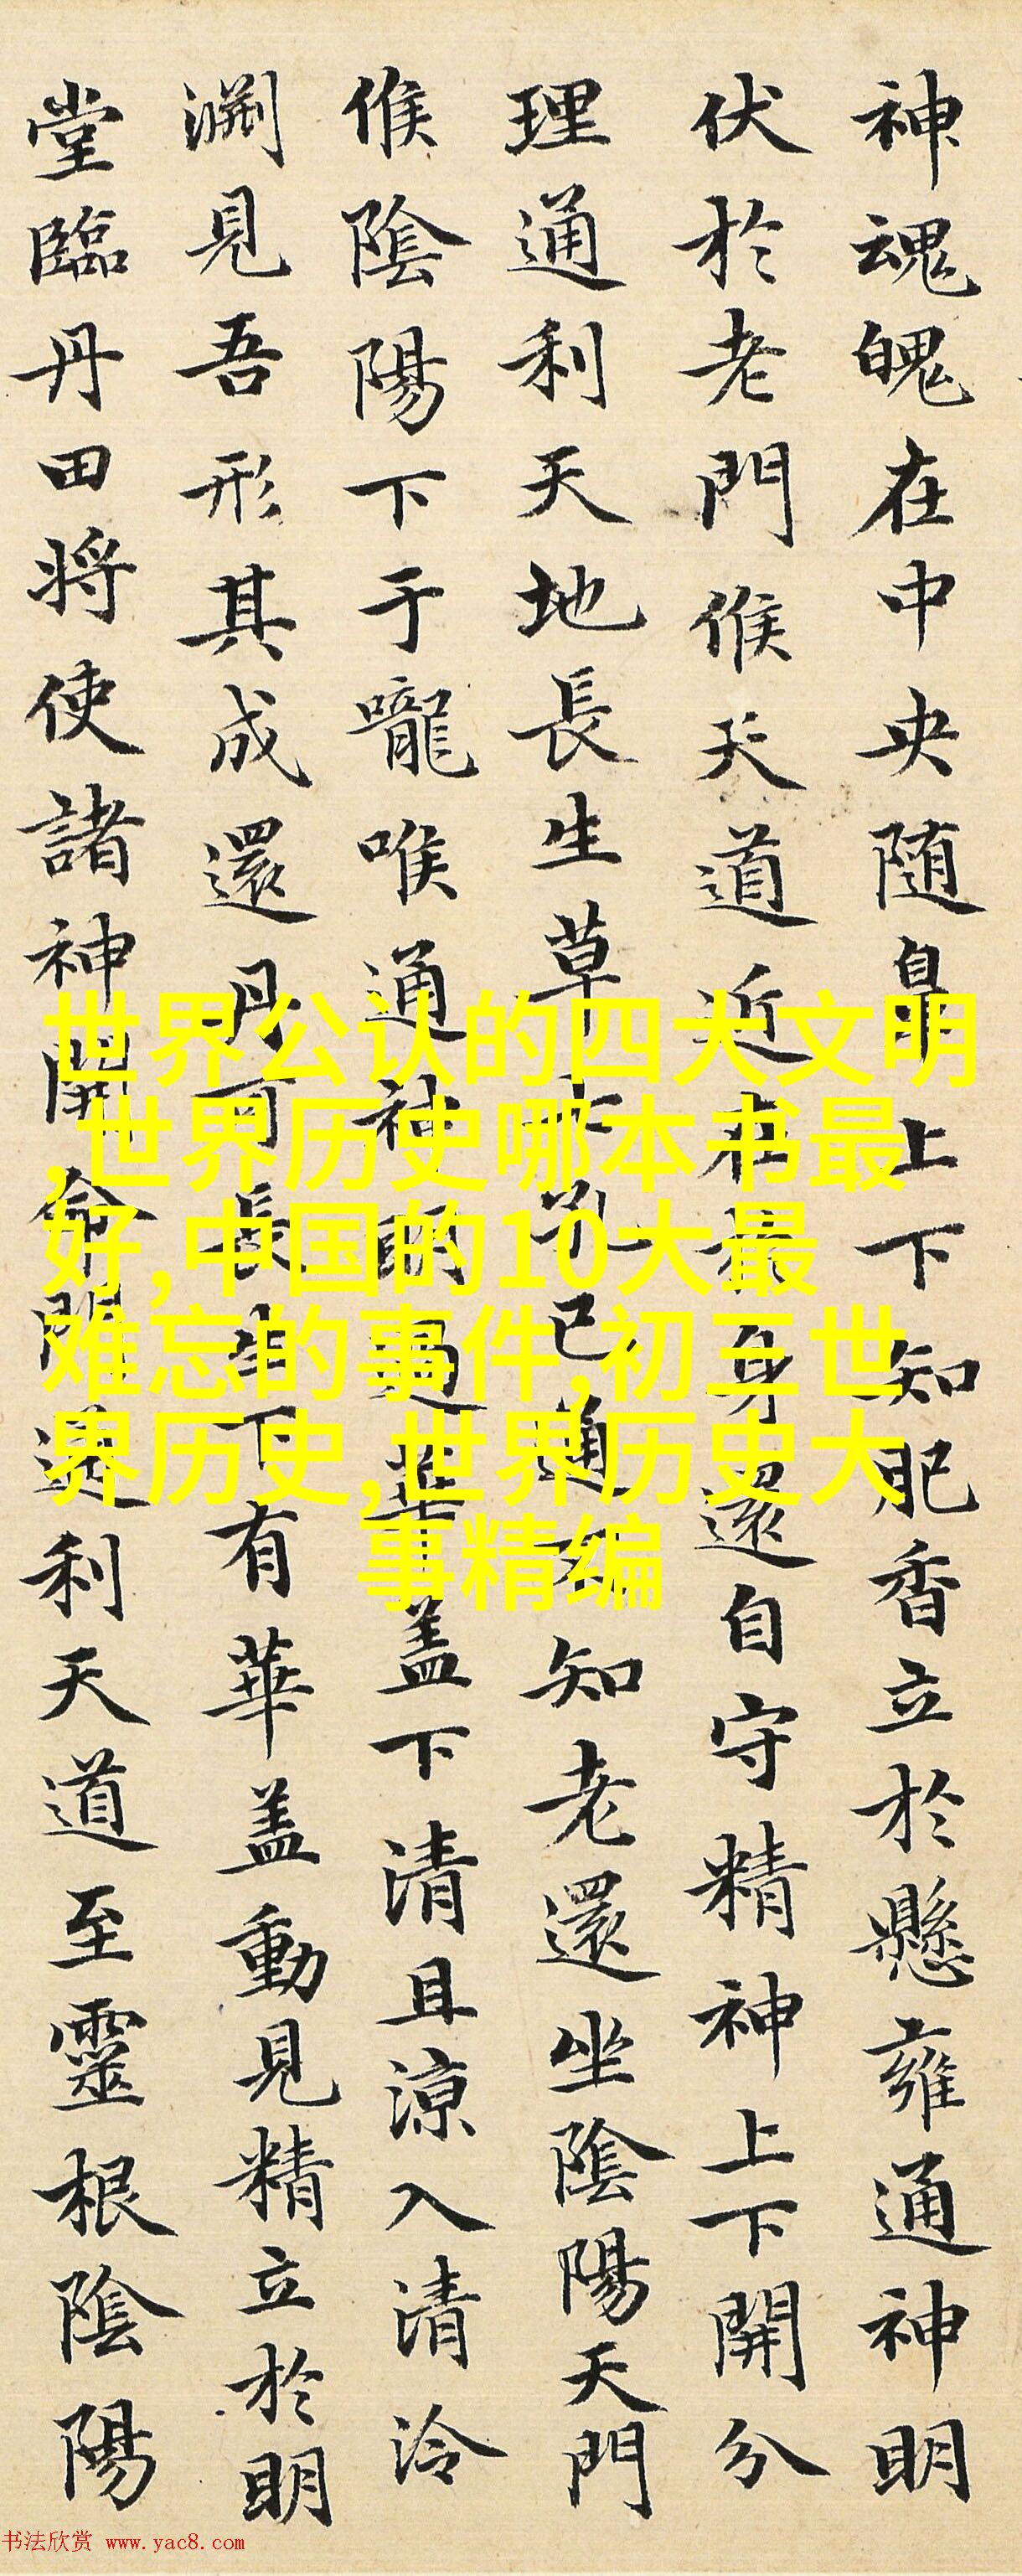 神魂魄在中央随鼻上下知肥香立於懸雍通神明
伏於老門候天道近在於身還自守精神上下開分
理通利天地長生草七孔已通不知老還坐陰陽天門
候陰陽下于嚨喉通神明過華蓋下清且涼入清泠
淵見吾形其成還丹可長生下有華蓋動見精立於明
堂臨丹田将使諸神開命門通利天道至靈根陰陽
世界公认的四大文明
,世界历史哪本书最
好,中国的10大最
难忘的事件,初三世
界历史,世界历史大
事精编
书法欣赏 www.yac8.com